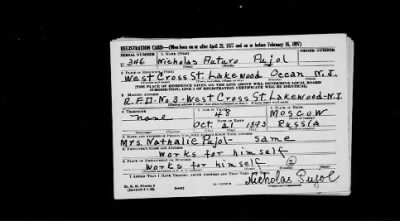 REGISTRATION CARD—(Men born on or after April 28, 1877 and on or before February 16, 1897)
SERIAL NUMBER 1. NAME (Print) ORDER NUMBER
U 346 Nicholas Arturo Pujol
2. PLACE OF RESIDENCE (Print)
West Cross St. Lakewood Ocean N.J.
[THE PLACE OF RESIDENCE GIVEN ON THE LINE ABOVE WILL DETERMINE LOCAL BOARD
JURISDICTION; LINE 2 OF REGISTRATION CERTIFICATE WILL BE IDENTICAL]
3. MAILING ADDRESS
R.F.D. No 3 - West Cross St. Lakewood - N.J.
4. TELEPHONE 5. AGE IN YEARS 6. PLACE OF BIRTH
none 48 Moscow
DATE OF BIRTH
Oct 21 1893 Russia
7. NAME AND ADDRESS OF PERSON WHO WILL ALWAYS KNOW YOUR ADDRESS
Mrs Nathalie Pujol - same
8. EMPLOYER'S NAME AND ADDRESS
Works for himself
9. PLACE OF EMPLOYMENT OR BUSINESS
Works for himself
I AFFIRM THAT I HAVE VERIFIED ABOVE ANSWERS AND THAT THEY ARE TRUE.
D. S. S. Form 1
Nicholas Pujol